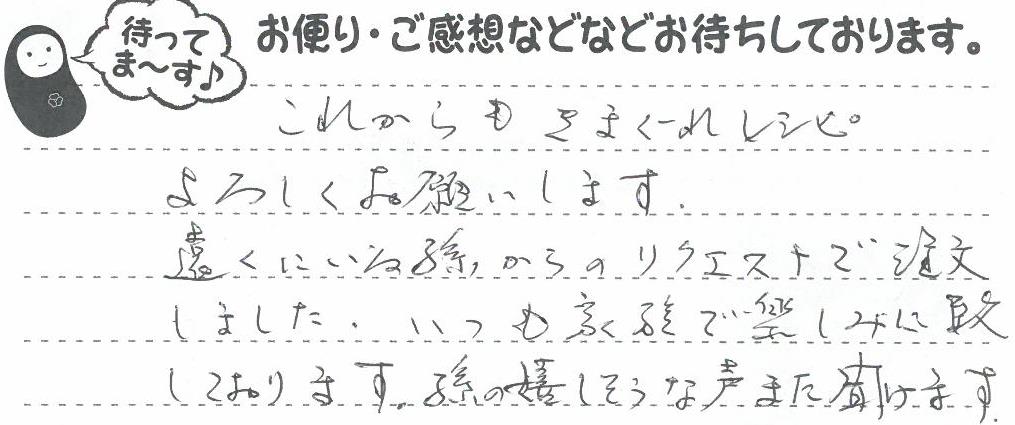 待って
ま～す♪
お便り・ご感想などなどお待ちしております。
これからもきまぐれレシピ
よろしくお願いします.
遠くにいる孫からのリクエストで注文
しました. いつも家族で楽しみに
しております。孫の嬉しそうな声また聞けます.